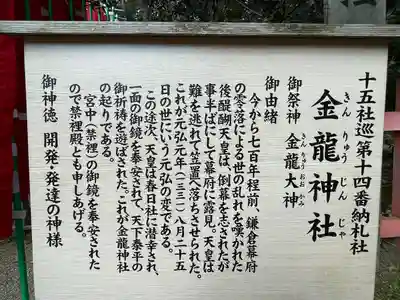 十五社巡第十四番納札社
金龍神社
きん りゅう じん じゃ
御祭神 金龍大神
きん りゅう おお かみ
御由緒
今から七百年程前、鎌倉幕府
の零落による世の乱れを嘆かれた
後醍醐天皇は、倒幕を志されたが
事半ばにして幕府に露見。天皇は
難を逃れて笠置へ落ちさせられた。
これが元弘元年(一三三一)八月二十五
日の世にいう元弘の変である。
この途次、天皇は春日社に潜幸され、
一面の御鏡を奉安されて、天下泰平の
御祈祷を遊ばされた。これが金龍神社
の起りである。
宮中(禁裡)の御鏡を奉安された
ので禁裡殿とも申しあげる。
御神徳 開発・発達の神様